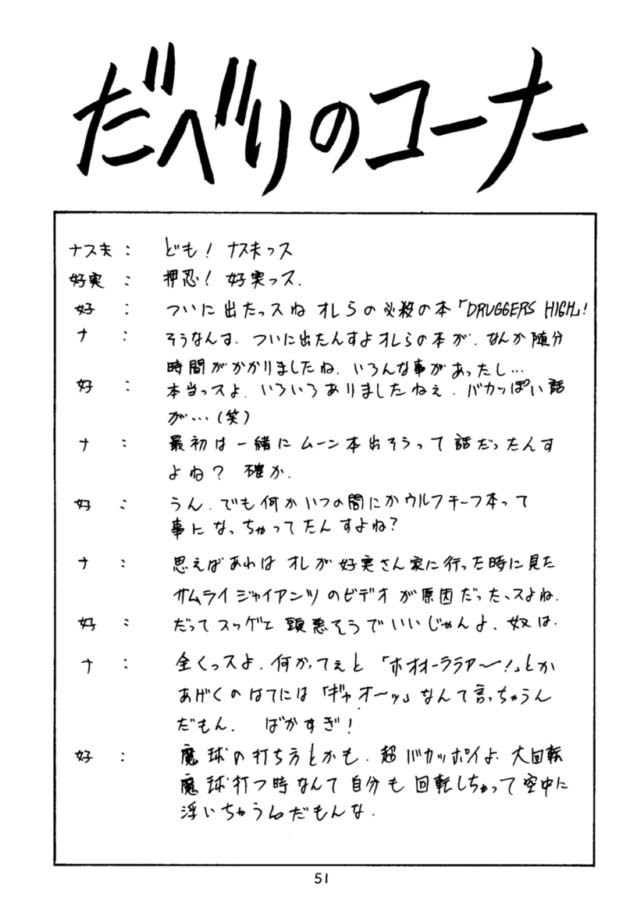 だべりのコーナー
ナス夫： ども！ナス夫っス
好実： 押忍！好実っス.
好： ついに出たっスねオレらの必殺の本「DRUGGERS HIGH」！
ナ： そうなんす. ついに出たんすよオレらの本が. なんか随分
時間がかかりましたね. いろんな事があったし…
好： 本当っスよ. いろいろありましたねぇ. バカッぽい話
が…(笑)
ナ： 最初は一緒にムーン本出そうって話だったんす
よね？ 確か.
好： うん. でも何かいつの間にかウルフチーフ本って
事になっちゃってたんすよね？
ナ： 思えばあれはオレが好実さん家に行った時に見た
サムライジャイアンツのビデオが原因だったっスよね.
好： だってスッゲェ頭悪そうでいいじゃんよ. 奴は.
ナ： 全くっスよ. 何かってぇと「ホオオーララアー！」とか
あげくのはてには「ギャオーッ」なんて言っちゃうん
だもん. ばかすぎ！
好： 魔球の打ち方とかも. 超バカッポイよ. 大回転
魔球打つ時なんて自分も回転しちゃって空中に
浮いちゃうんだもんな.
51